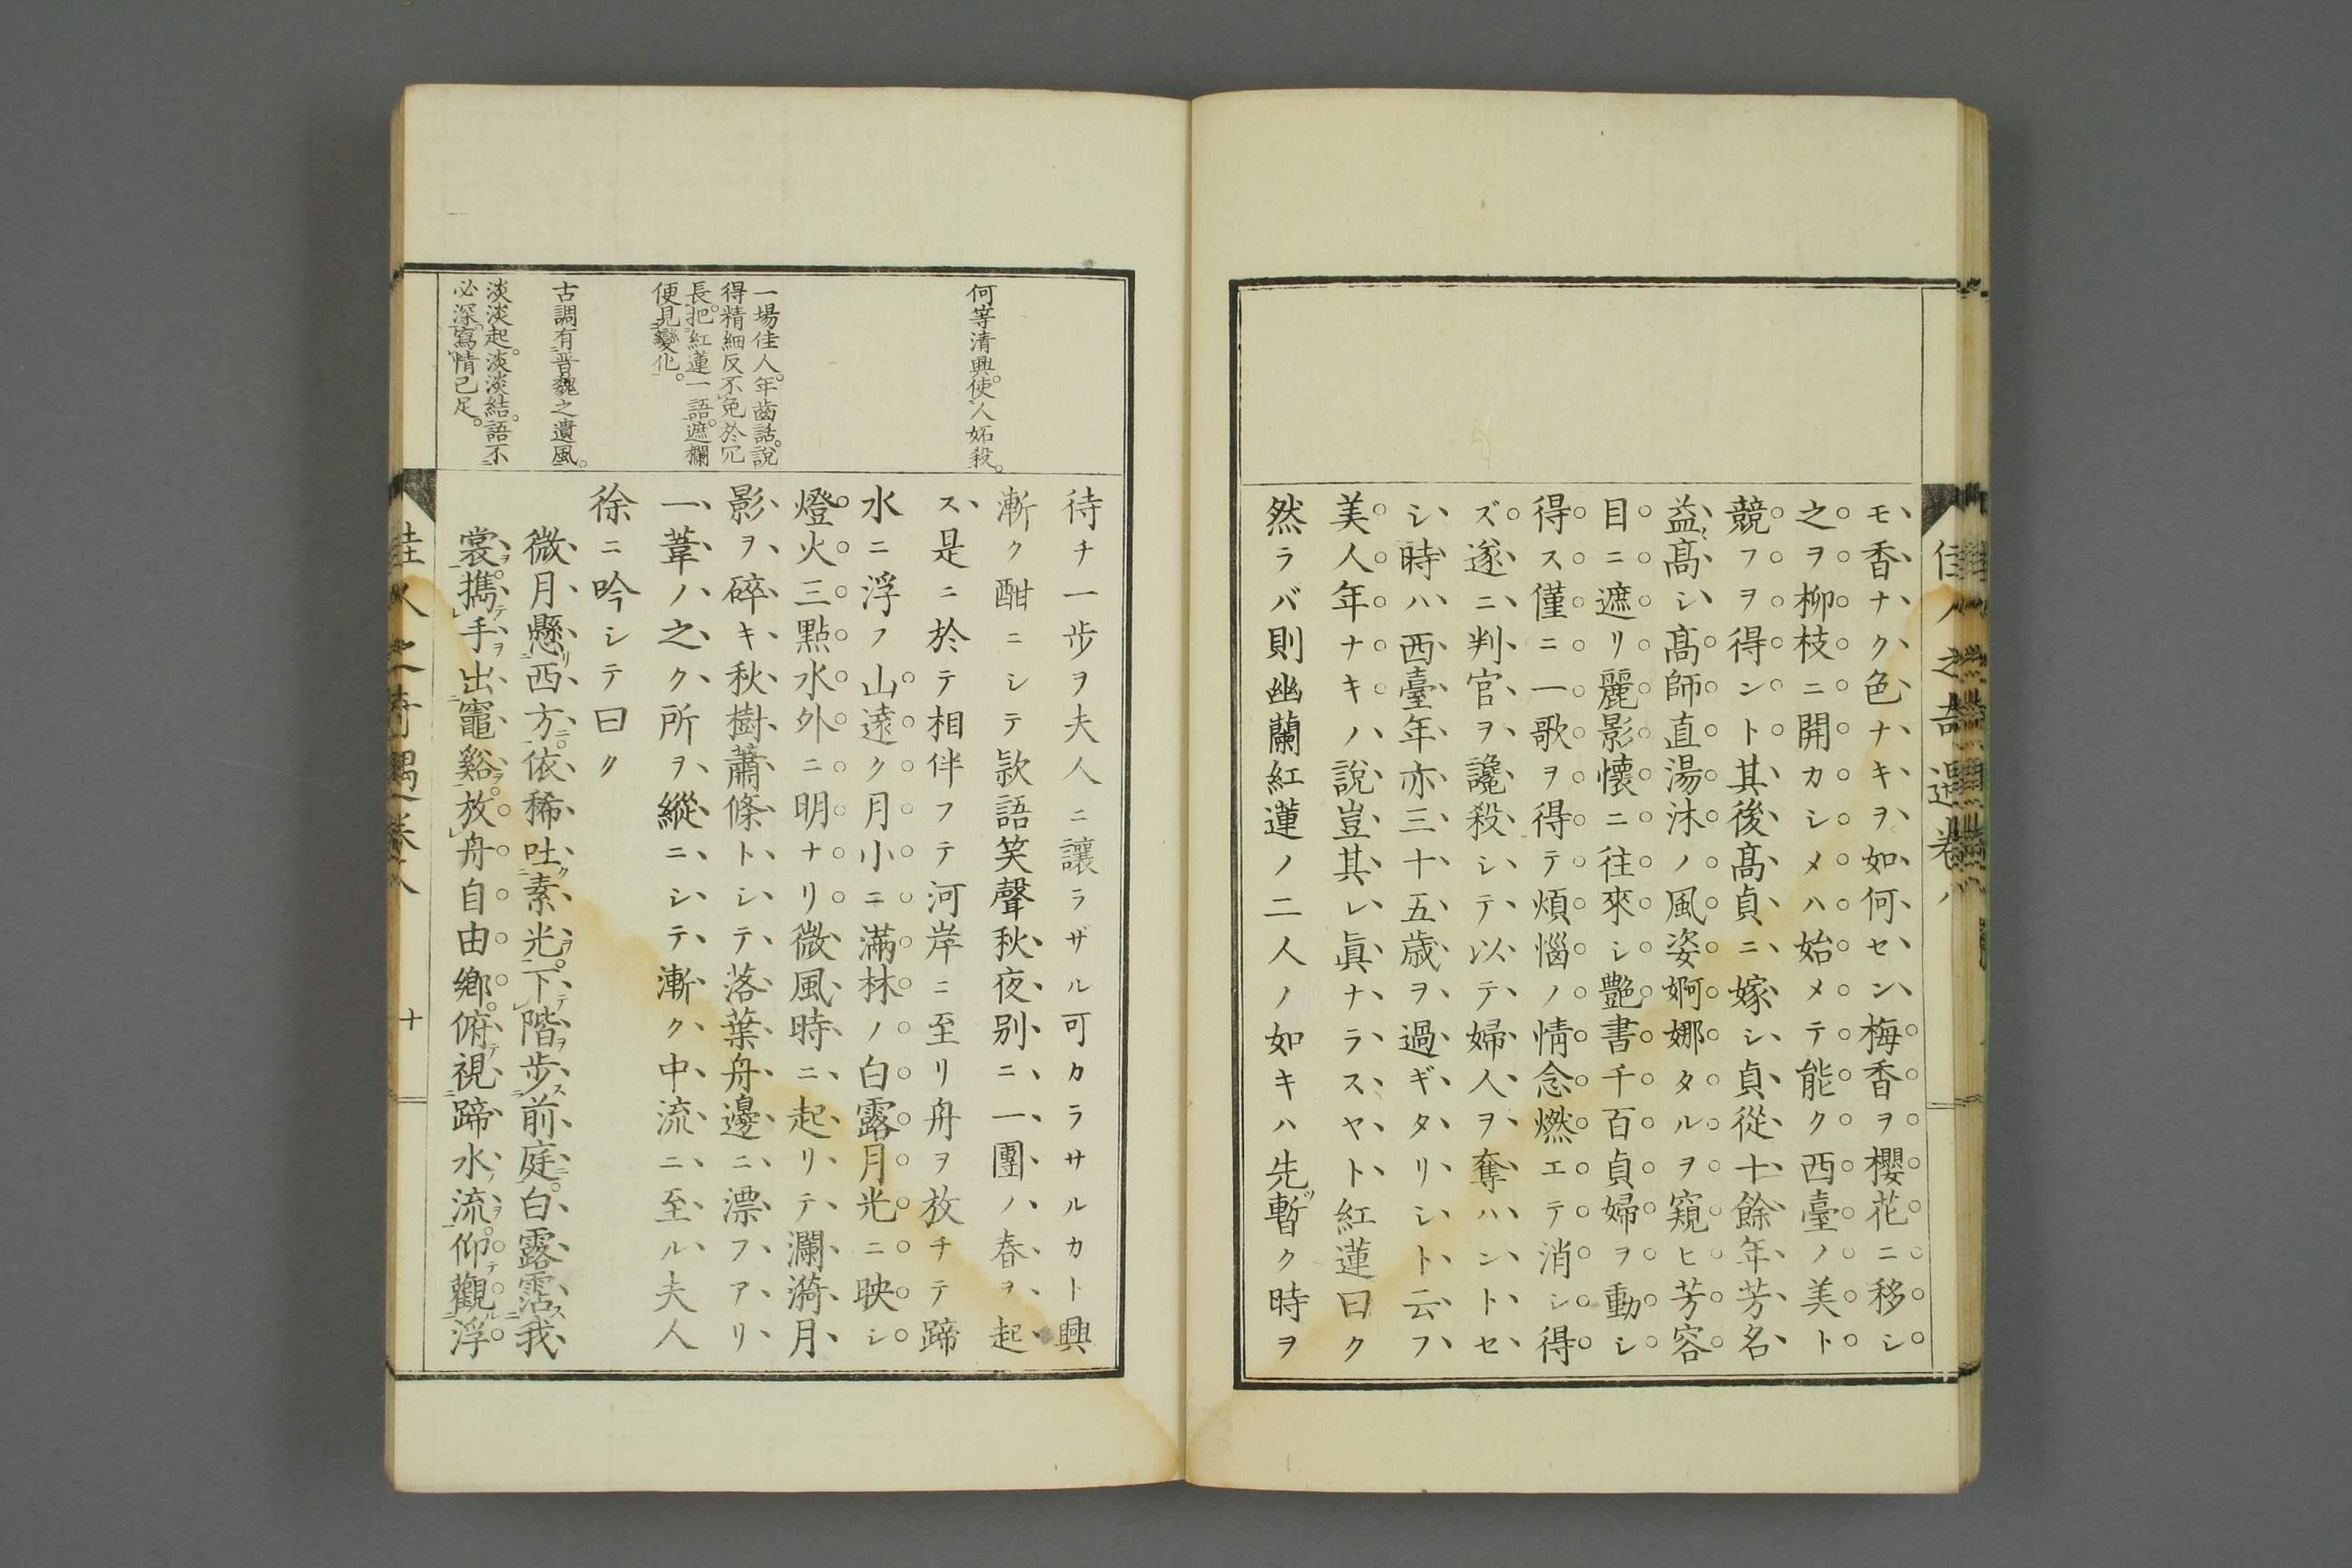 モ香ナク色ナキヲ如何セン梅香ヲ櫻花ニ移シ
之ヲ柳枝ニ開カシメハ始メテ能ク西臺ノ美ト
競フヲ得ント其後髙貞ニ嫁シ貞從十餘年芳名
益髙シ髙師直湯沐ノ風姿婀娜タルヲ窺ヒ芳容
目ニ遮リ麗影懷ニ往來シ艷書千百貞婦ヲ動シ
得ス僅ニ一歌ヲ得テ煩惱ノ情念燃エテ消シ得
ズ遂ニ判官ヲ讒殺シテ以テ婦人ヲ奪ハントセ
シ時ハ西臺年亦三十五歳ヲ過ギタリシト云フ
美人年ナキノ說豈其レ眞ナラスヤト紅蓮曰ク
然ラバ則幽蘭紅蓮ノ二人ノ如キハ先暫ク時ヲ
待チ一歩ヲ夫人ニ讓ラザル可カラサルカト興
漸ク酣ニシテ款語笑聲秋夜别ニ一團ノ春ヲ起
ス是ニ於テ相伴フテ河岸ニ至リ舟ヲ放チテ蹄
水ニ浮フ山遠ク月小ニ滿林ノ白露月光ニ映シ
燈火三點水外ニ明ナリ微風時ニ起リテ瀾漪月
影ヲ碎キ秋樹蕭條トシテ落葉舟邊ニ漂フアリ
一葦ノ之ク所ヲ縱ニシテ漸ク中流ニ至ル夫人
徐ニ吟シテ曰ク
微月懸西方依稀吐素光下階步前庭白露霑我
裳攜手出竈谿放舟自由鄉俯視蹄水流仰觀浮
何等清興使人妬殺
一場佳人年齒話說
得精細反不免於冗
長把紅蓮一語遮欄
便見變化
古調有晋魏之遺風
淡淡起淡淡結語不
必深寫情已足
佳人之奇遇卷八
十